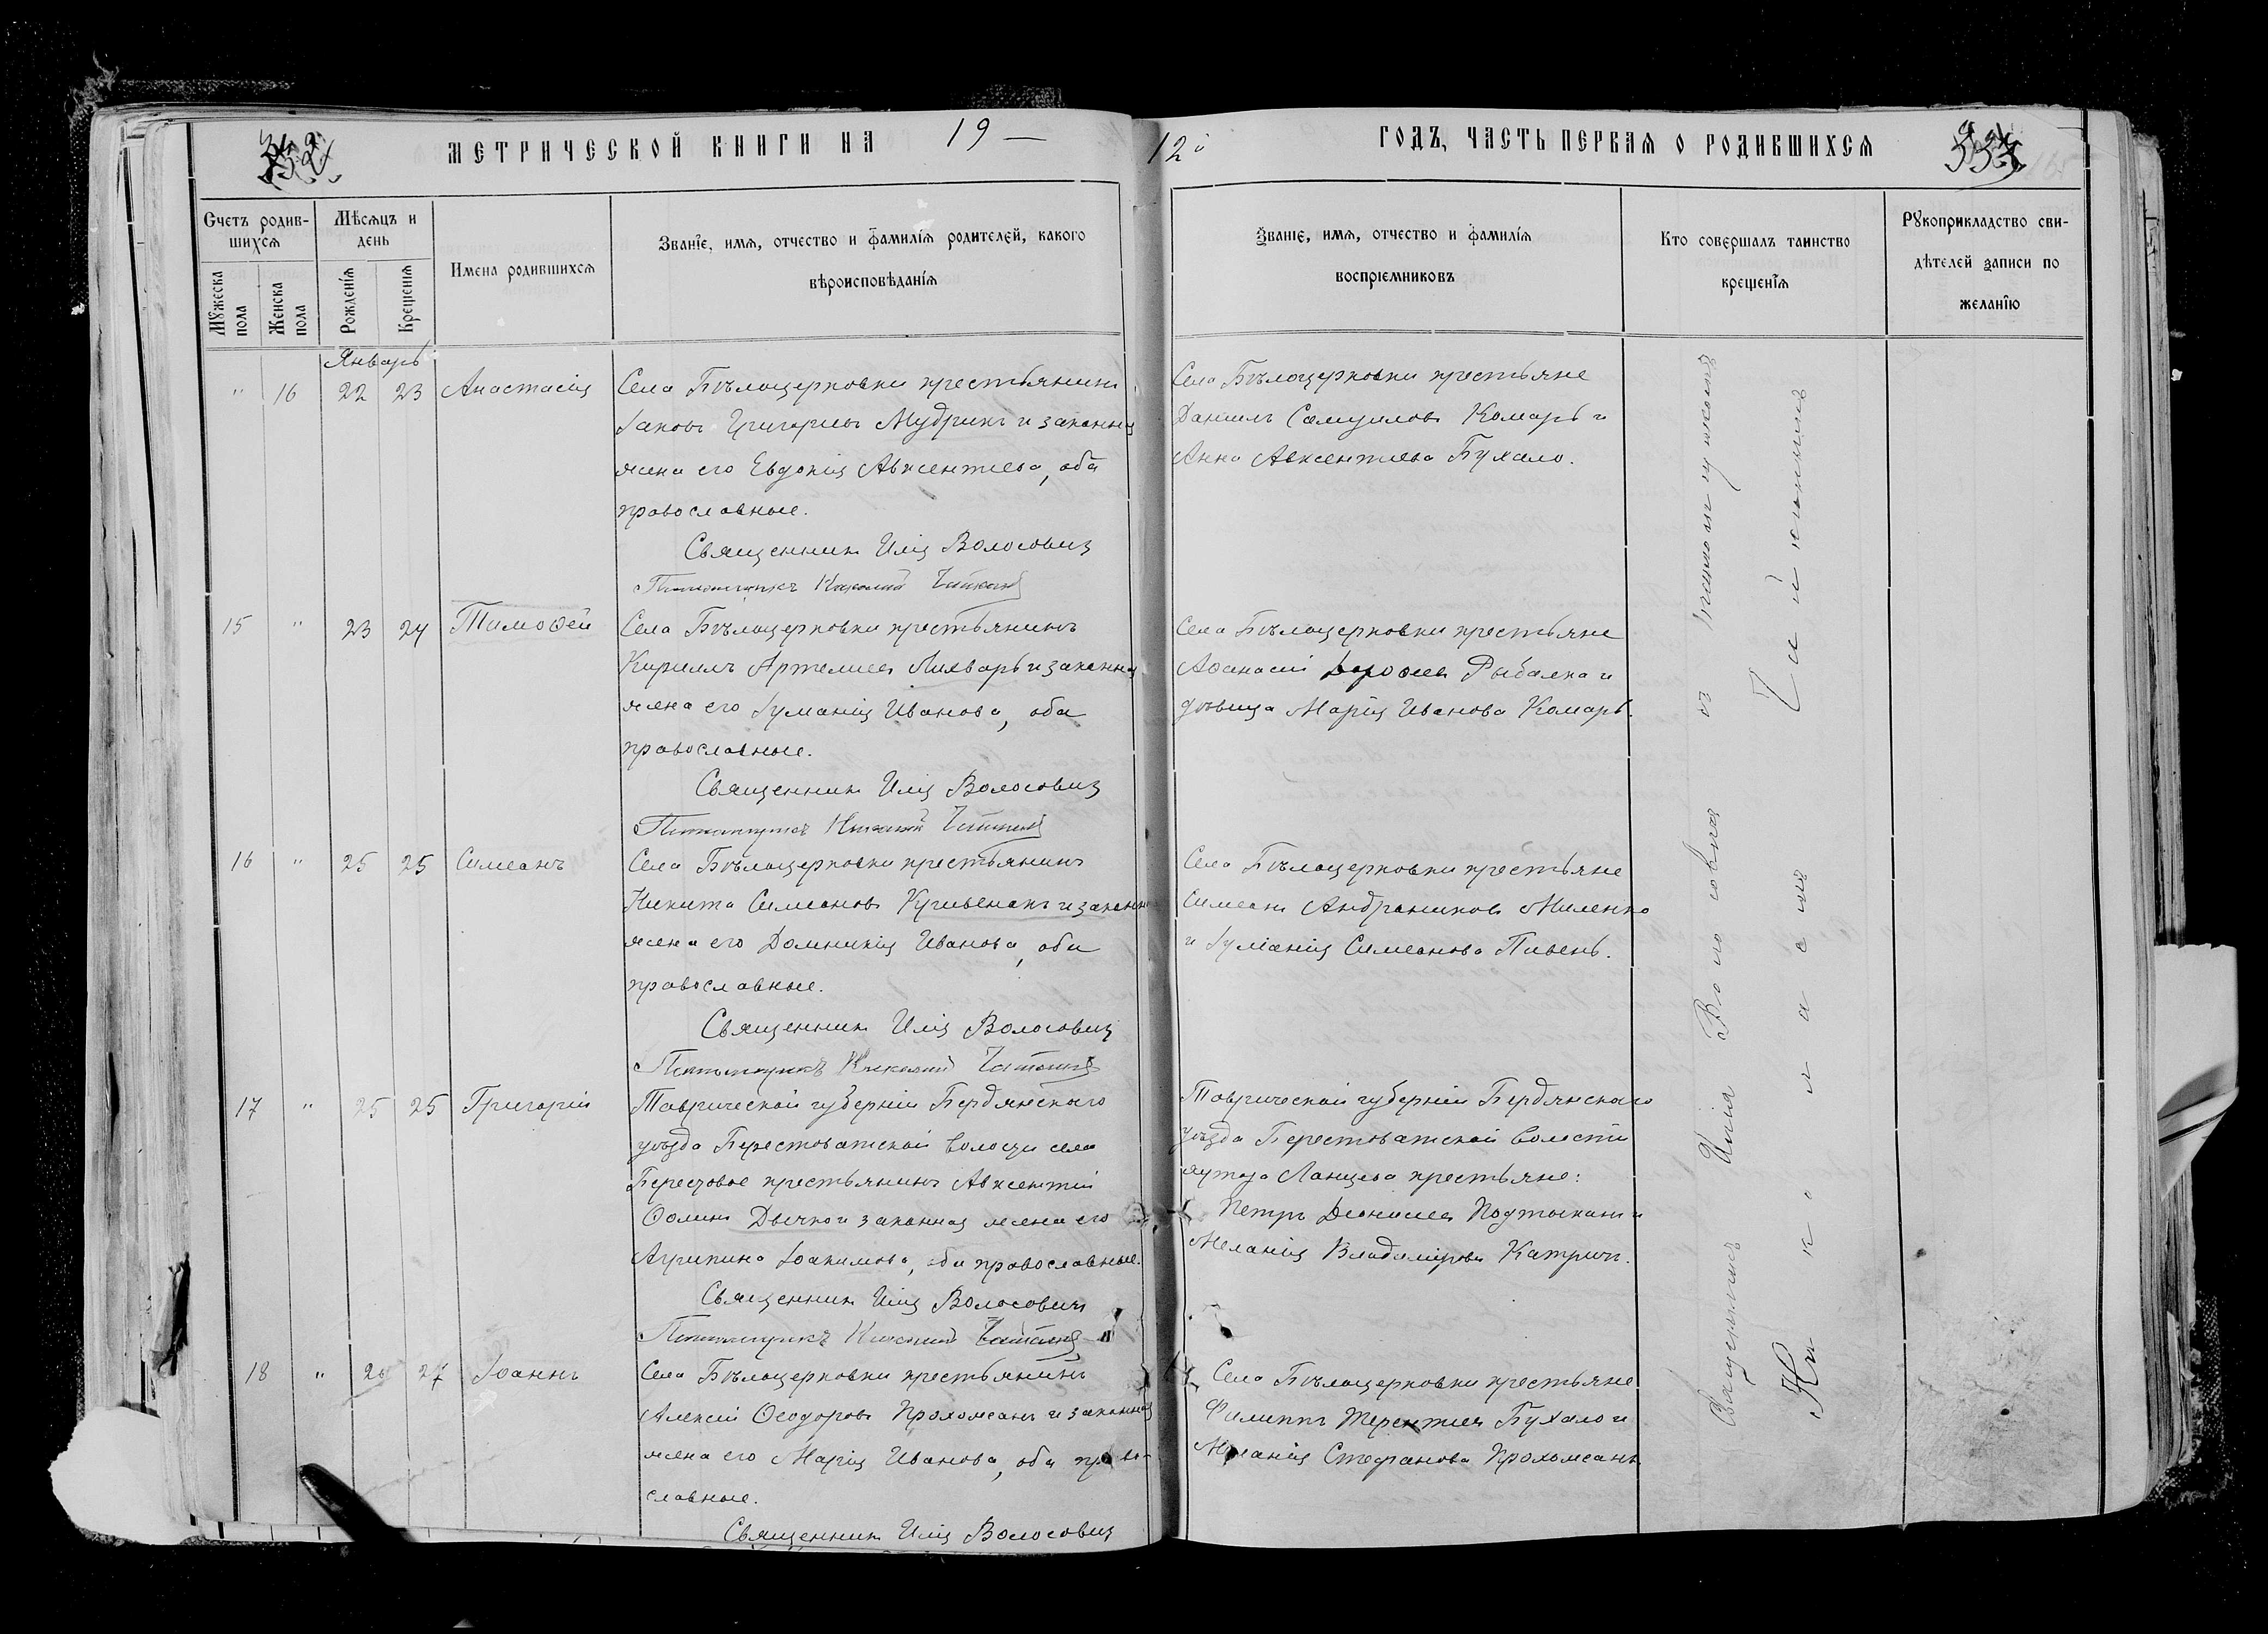 МЕТРИЧЕСКОЙ КНИГИ НА 19 —
12й ГОДЪ, ЧАСТЬ ПЕРВАЯ О РОДИВШИХСЯ
Счетъ родив-
шихся
Мѣсяцъ и
день
Мужеска
пола
Женска
пола
Рожденія
Крещенія
Имена родившихся
Званіе, имя, отчество и фамилія родителей, какого
вѣроисповѣданія
Званіе, имя, отчество и фамилія
воспріемниковъ
Кто совершалъ таинство
крещенія
Рукоприкладство сви-
дѣтелей записи по
желанію
Январь
" 16 22 23 Анастасія
Села Бѣлоцерковки крестьянинъ
Іаковъ Григоріевъ Мудрикъ и законная
жена его Евдокія Авксентіева, оба
православные.
Священникъ Илія Волосовичъ
Николай
Села Бѣлоцерковки крестьяне
Даніилъ Самуиловъ Комарь и
Анна Авксентіева Бухало.
15 " 23 24 Тимоѳей
Села Бѣлоцерковки крестьянинъ
Кириллъ Артеміевъ Лихварь и законная
жена его Іуліанія Иванова, оба
православные.
Священникъ Илія Волосовичъ
Николай
Села Бѣлоцерковки крестьяне
Аѳанасій Дороѳеевъ Рыбалка и
дѣвица Марія Иванова Комарь.
16 " 25 25 Симеонъ
Села Бѣлоцерковки крестьянинъ
Никита Симеоновъ и законная
жена его Домникія Иванова, оба
православные.
Священникъ Илія Волосовичъ
Николай
Села Бѣлоцерковки крестьяне
Симеонъ Андрониковъ Миленко
и Іуліанія Симеонова Пивень.
17 " 25 25 Григорій
Таврической губерніи Бердянскаго
уѣзда Берестоватской волости села
Берестовое крестьянинъ Авксентій
Ѳоминъ Дычко и законная жена его
Агрипина Іоакимова, оба православные.
Священникъ Илія Волосовичъ
Николай
Таврической губерніи Бердянскаго
уѣзда Берестоватской волости
хутора крестьяне:
Петръ Діонисіевъ и
Меланія Владимірова Катричъ.
18 " 26 27 Іоаннъ
Села Бѣлоцерковки крестьянинъ
Алексій Ѳеодоровъ и законная
жена его Марія Иванова, оба право-
славные.
Священникъ Илія Волосовичъ
Села Бѣлоцерковки крестьяне
Филиппъ Терентіевъ Бухало и
Меланія Стефанова
Священникъ Илія Волосовичъ съ псаломщикомъ
Николаемъ